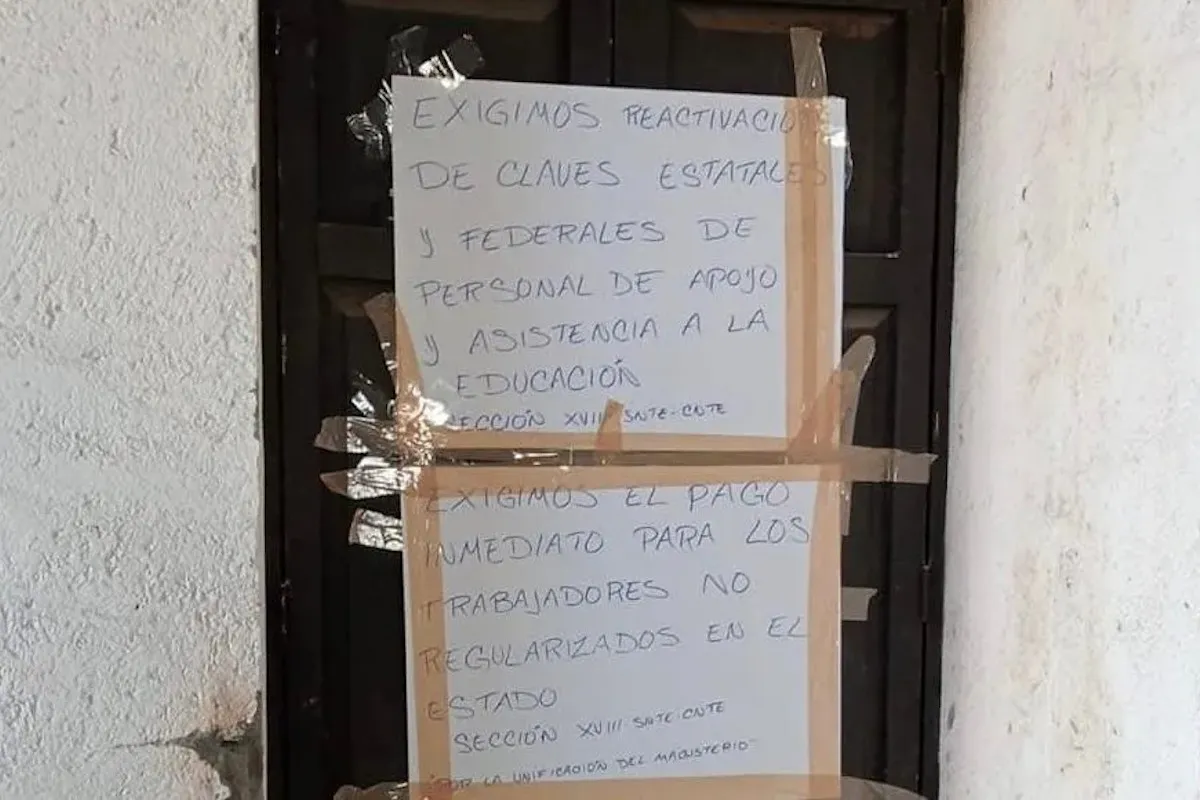 EXIGIMOS REACTIVACION
DE CLAVES ESTATALES
y FEDERALES DE
PERSONAL DE APOYO
y ASISTENCIA A LA
EDUCACIÓN
SECCIÓN XVIII SNTE-CNTE
EXIGIMOS EL PAGO
INMEDIATO PARA LOS
TRABAJADORES NO
REGULARIZADOS EN EL
ESTADO
SECCIÓN XVIII SNTE CNTE
"POR LA UNIFICACIÓN DEL MAGISTERIO"